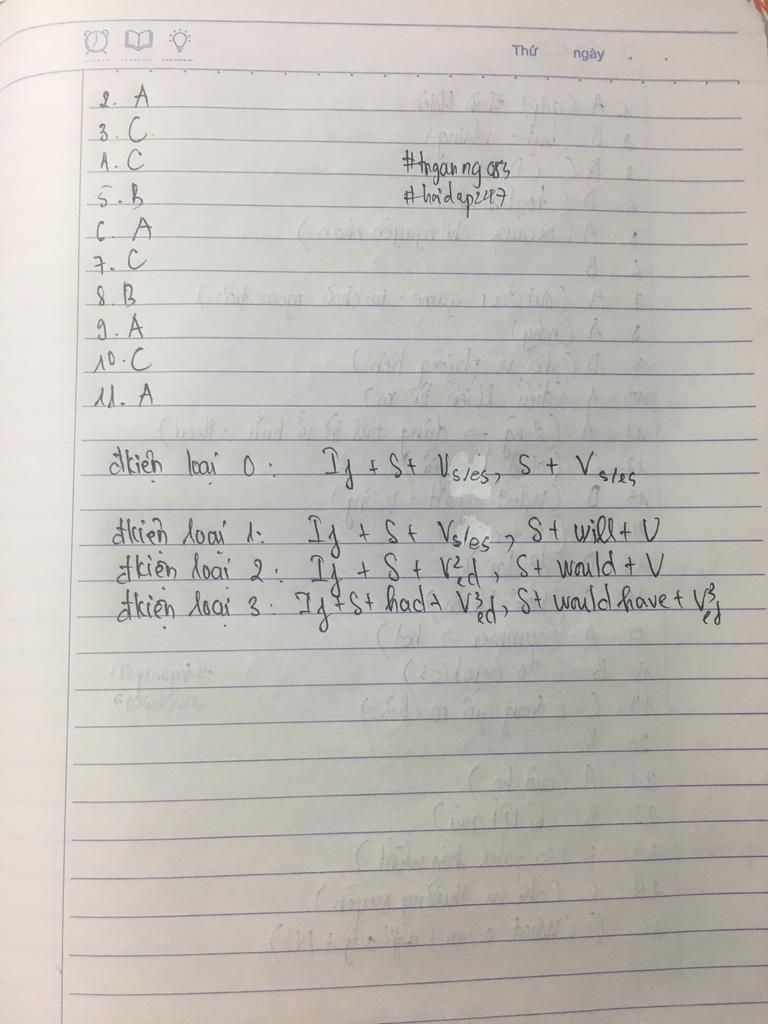 Thứ ngày . .
2. A
3. C
4. C #tnganng083
5. B #hoidap247
6. A
7. C
8. B
9. A
10. C
11. A
đkiện loại 0: If + S + Vs/es, S + Vs/es
đkiện loại 1: If + S + Vs/es, S + will + V
đkiện loại 2: If + S + V2/ed, S + would + V
đkiện loại 3: If + S + had + V3/ed, S + would have + V3/ed